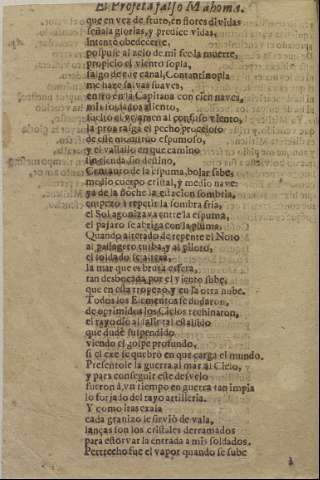 El Profeta falso Mahoma.
que en vez de fruto, en flores divididas
señala glorias, y predice vidas,
Intentè obedecerte,
pospuse al zelo de mi fee la muerte,
propicio el viento sopla,
salgo de esse canal, Constantinopla
me haze salvas suaves,
entro en la Capitana con cien naves,
mis soldados aliento,
suelto el velamen al confuso viento,
la proa rasga el pecho proceloso
de este monstruo espumoso,
y el vassallo en que camino
sin senda sin destino,
Centauro de la espuma, bolar sabe,
medio cuerpo cristal, y medio nave:
ya de la noche la estacion sombria,
empezò à repetir la sombra fria,
el Sol agonizava entre la espuma,
el pajaro se abriga con la pluma.
Quando alterado de repente el Noto
al passagero turba, y al piloto,
el soldado se altera,
la mar que es bruta esfera,
tan desbocada por el viento sube,
que en esta tropezò, y en la otra nube.
Todos los Elementos se dudaron,
de oprimidos los Cielos rechinaron,
el rayo dio al salir tal estallido
que dudè suspendido
viendo el golpe profundo,
si el exe se quebrò en que carga el mundo.
Presentole la guerra al mar al Cielo,
y para conseguir este desvelo
fueron à un tiempo en guerra tan impia
lo forjado del rayo artilleria.
Y como iras exala
cada granizo le sirviò de vala,
lanças son los cristales derramados
para estorvar la entrada à mis soldados.
Pertrecho fue el vapor quando se sube